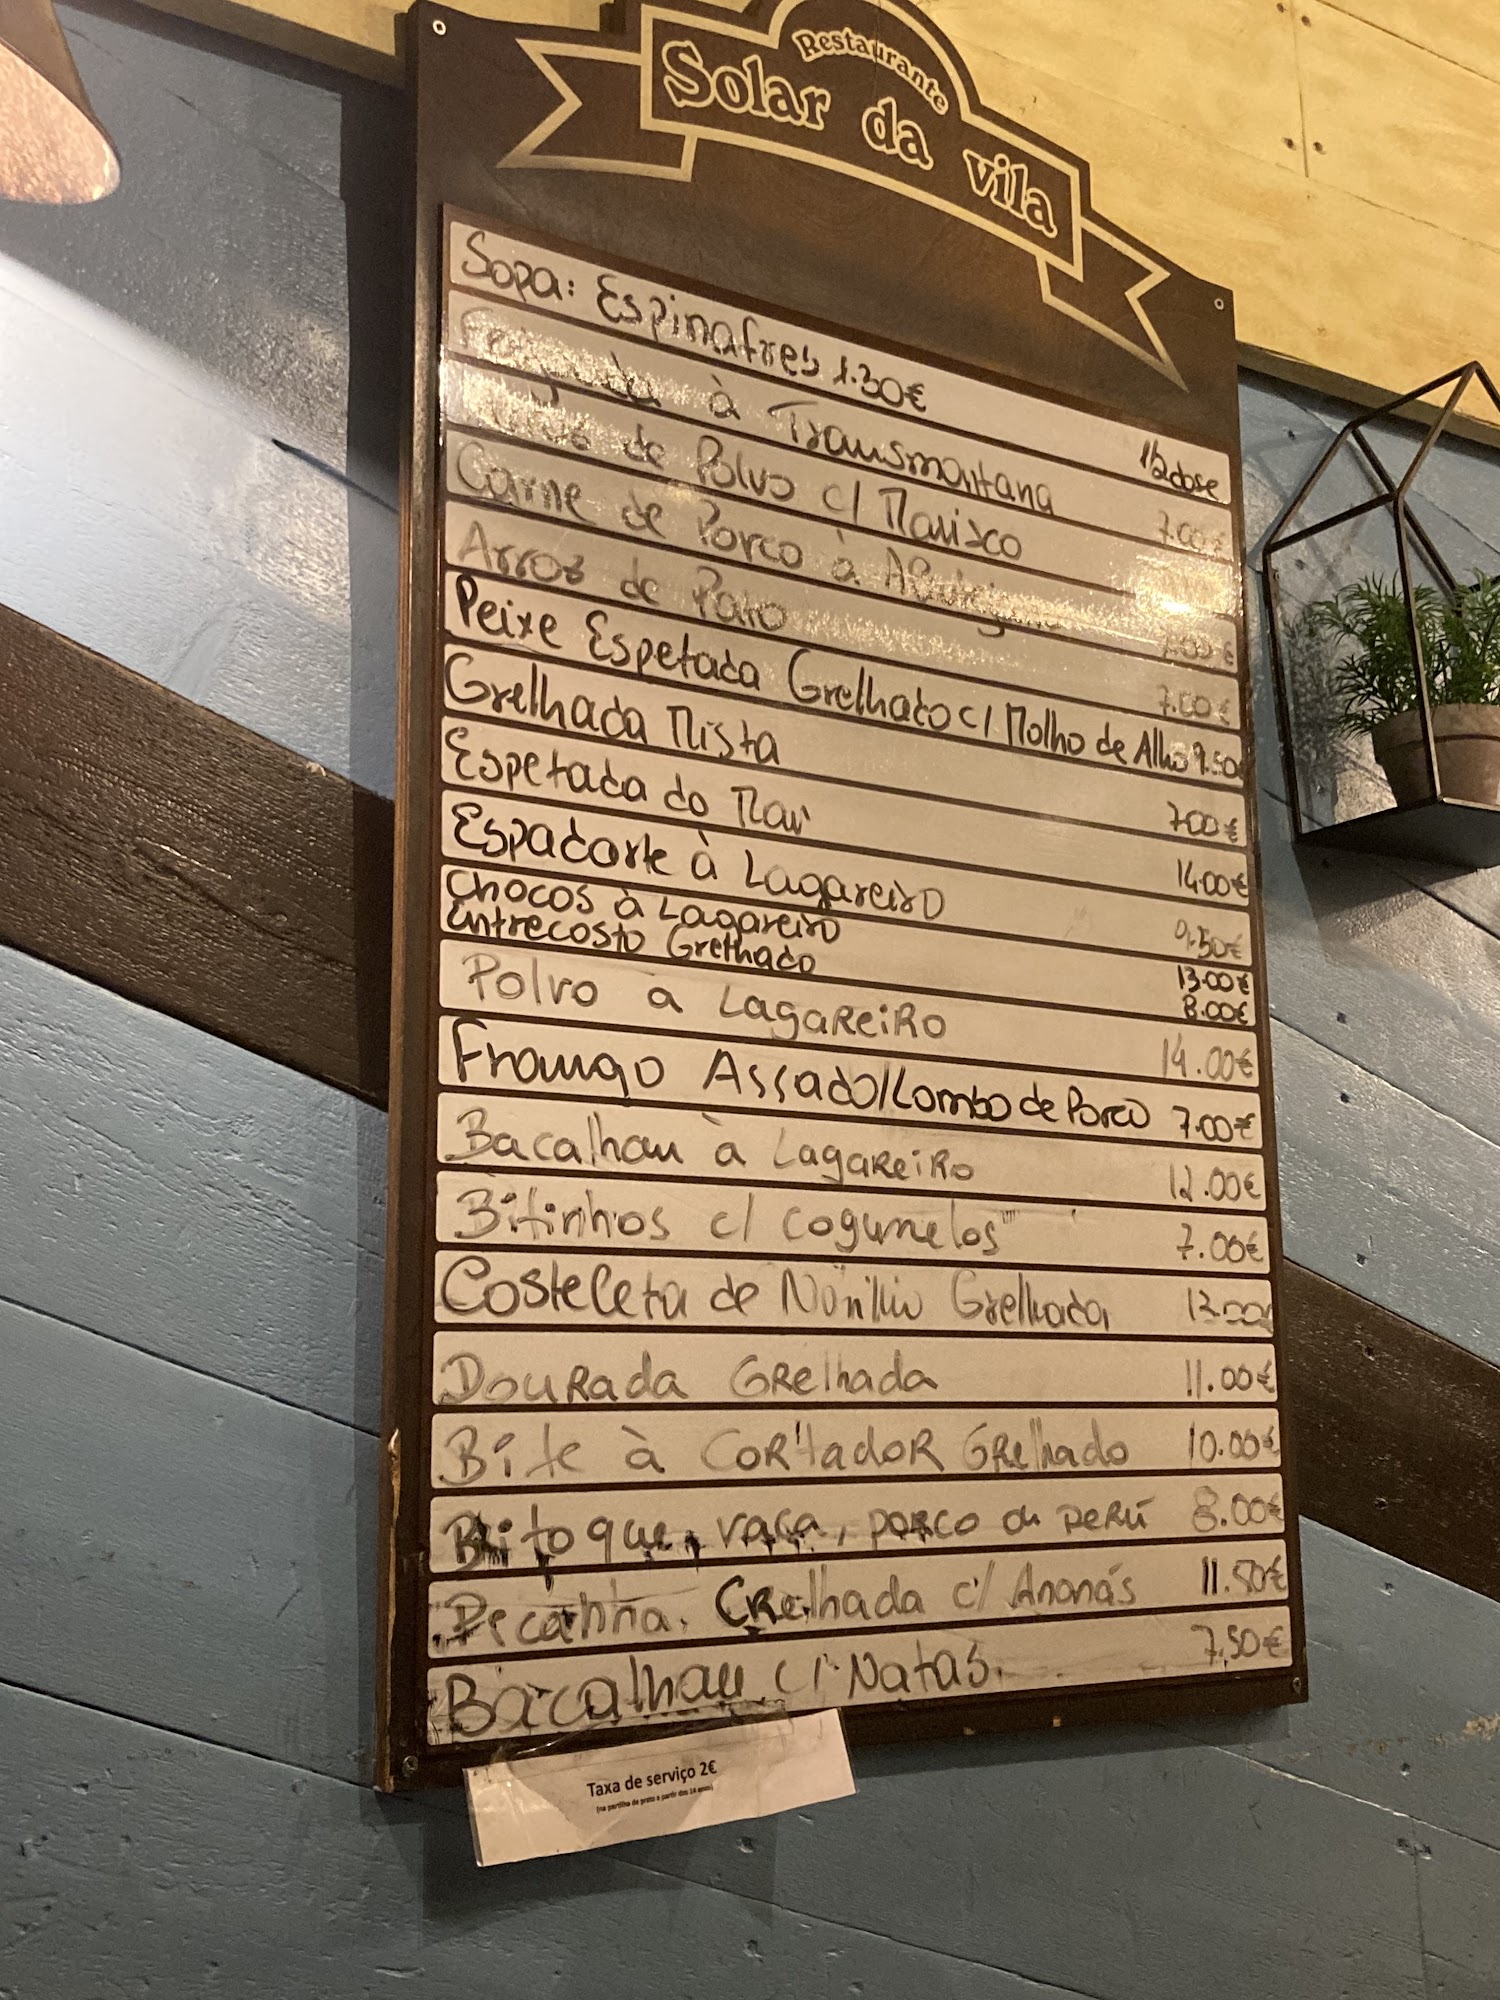 Restaurante
Solar da vila
Sopa: Espinafres 1.30€
1/2 dose
Feijoada à Transmontana 7.00€
de Polvo c/ Marisco
Carne de Porco à 7.00€
Arroz de Pato 7.00€
Peixe Espetada Grelhado c/ Molho de Alho 9.50€
Grelhada Mista 7.00€
Espetada do Mar 14.00€
Espadarte à Lagareiro 9.50€
Chocos à Lagareiro 13.00€
Entrecosto Grelhado 8.00€
Polvo a Lagareiro 14.00€
Frango Assado/Lombo de Porco 7.00€
Bacalhau à Lagareiro 12.00€
Bifinhos c/ cogumelos 7.00€
Costeleta de Novilho Grelhada 12.00€
Dourada Grelhada 11.00€
Bife à Cortador Grelhado 10.00€
Bitoque, vaca, porco ou Perú 8.00€
Picanha. Grelhada c/ Ananás 11.50€
Bacalhau c/ Natas. 7,50€
Taxa de serviço 2€
(na partilha de prato a partir dos 14 anos)